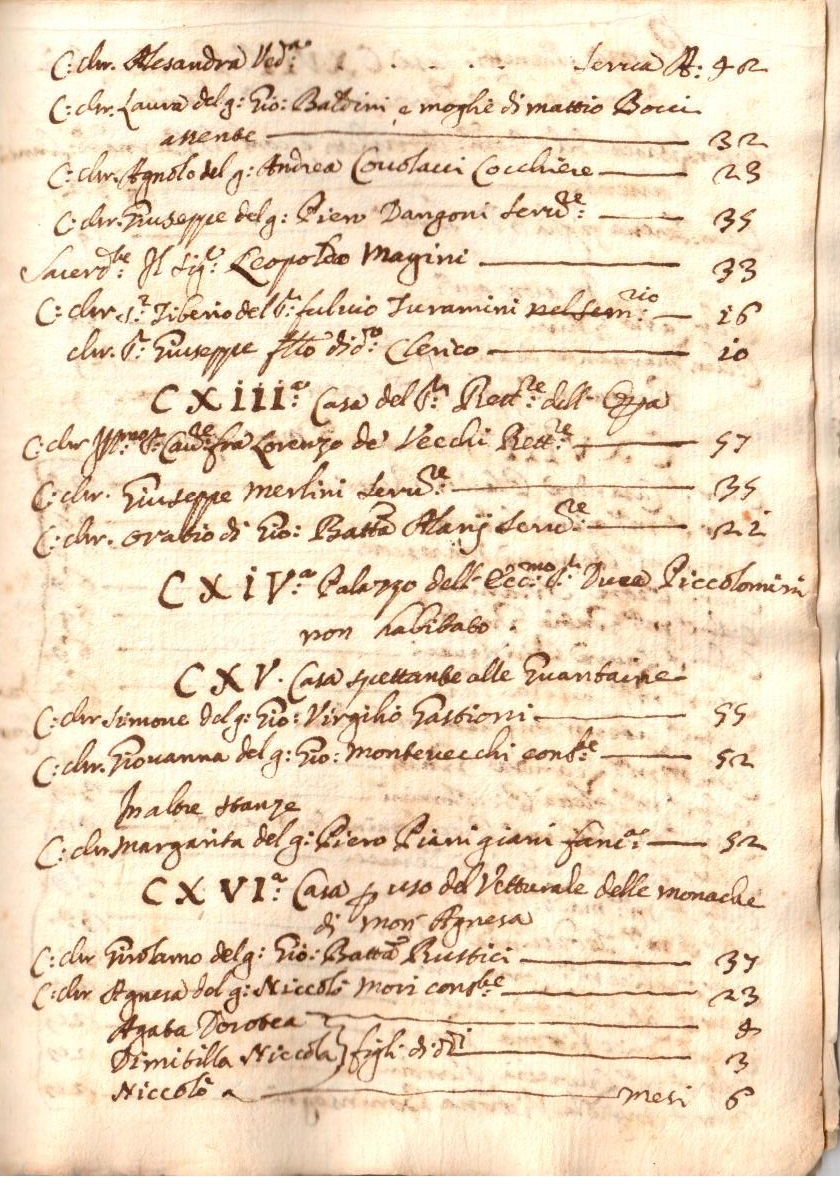 C: chr. Alesandra Ved.ª . . . . . Serva A: 42
C: chr. Laura del q: Gio: Baldini e moglie di mattio Bocci
assente 32
C: chr. Agnolo del q: Andrea Cocchiere 23
C: chr. Giuseppe del q: Piero Dangoni Serv.re 35
Sacerd.te Il Sig.r Leopoldo Magini 33
C: chr. S.r Tiberio del S.r fulvio Turamini nel Sem.rio 16
chr. S.r Giuseppe f'llo di d.o Clerico 10
CXiii.ª Casa del S.r Rett.re dell' Opa
C: chr Ill.mo S.r Cav.re fra Lorenzo de' Vecchi Rett.re 57
C: chr. Giuseppe merlini Serv.re 35
C: chr. Oratio di Gio: Batta Alarij Serv.re 21
CXiV.ª Palazzo dell' Ecc.mo S.r Duca Piccolomini
non habitato .
CXV. Casa spettante alle
C: chr Simone del q: Gio: Virgilio Gastioni 55
C: chr. Giovanna del q: Gio: Montevecchi cons.te 52
In altre stanze
C: chr margarita del q: Piero Pianigiani fanc.ª 52
CXVI.ª Casa p uso del Vetturale delle monache
di mon Agnesa
C: chr Girolamo del q: Gio: Batta Rustici 37
C: chr Agnesa del q: Niccolò Mori cons.te 23
Agata Dorotea 8
Dimitilla Niccola } figli di d.i 3
Niccolò a mesi 6